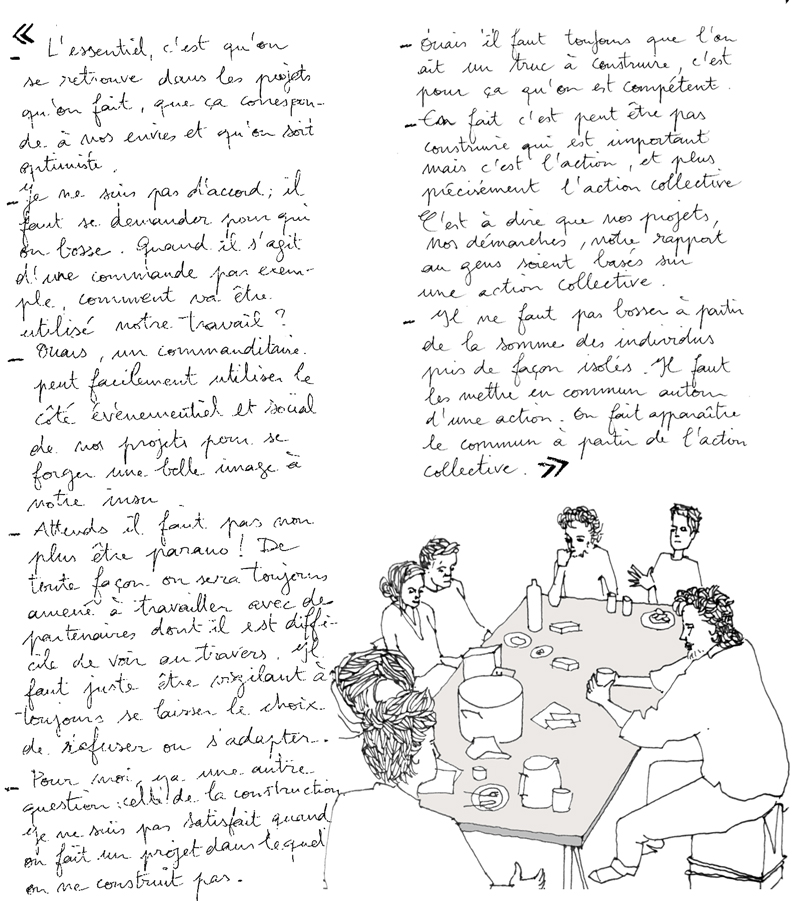 «
– L'essentiel, c'est qu'on
se retrouve dans les projets
qu'on fait, que ça correspon-
de à nos envies et qu'on soit
optimiste.
– Je ne suis pas d'accord ; il
faut se demander pour qui
on bosse. Quand il s'agit
d'une commande par exem-
ple, comment va être
utilisé notre travail ?
– Ouais, un commanditaire
peut facilement utiliser le
côté évènementiel et social
de nos projets pour se
forger une belle image à
notre insu
– Attends il faut pas non
plus être parano ! De
toute façon on sera toujours
amené à travailler avec des
partenaires dont il est diffi-
cile de voir au travers. Il
faut juste être vigilant à
toujours se laisser le choix
de refuser ou s'adapter.
– Pour moi, ya une autre
question : celle de la construction
je ne suis pas satisfait quand
on fait un projet dans lequel
on ne construit pas.
– Ouais il faut toujours que l'on
ait un truc à construire, c'est
pour ça qu'on est compétent.
– En fait c'est peut être pas
construire qui est important
mais c'est l'action, et plus
précisément l'action collective
C'est à dire que nos projets,
nos démarches, notre rapport
au gens soient basés sur
une action collective.
– Il ne faut pas bosser à partir
de la somme des individus
pris de façon isolés. Il faut
les mettre en commun autour
d'une action. On fait apparaître
le commun à partir de l'action
collective. »